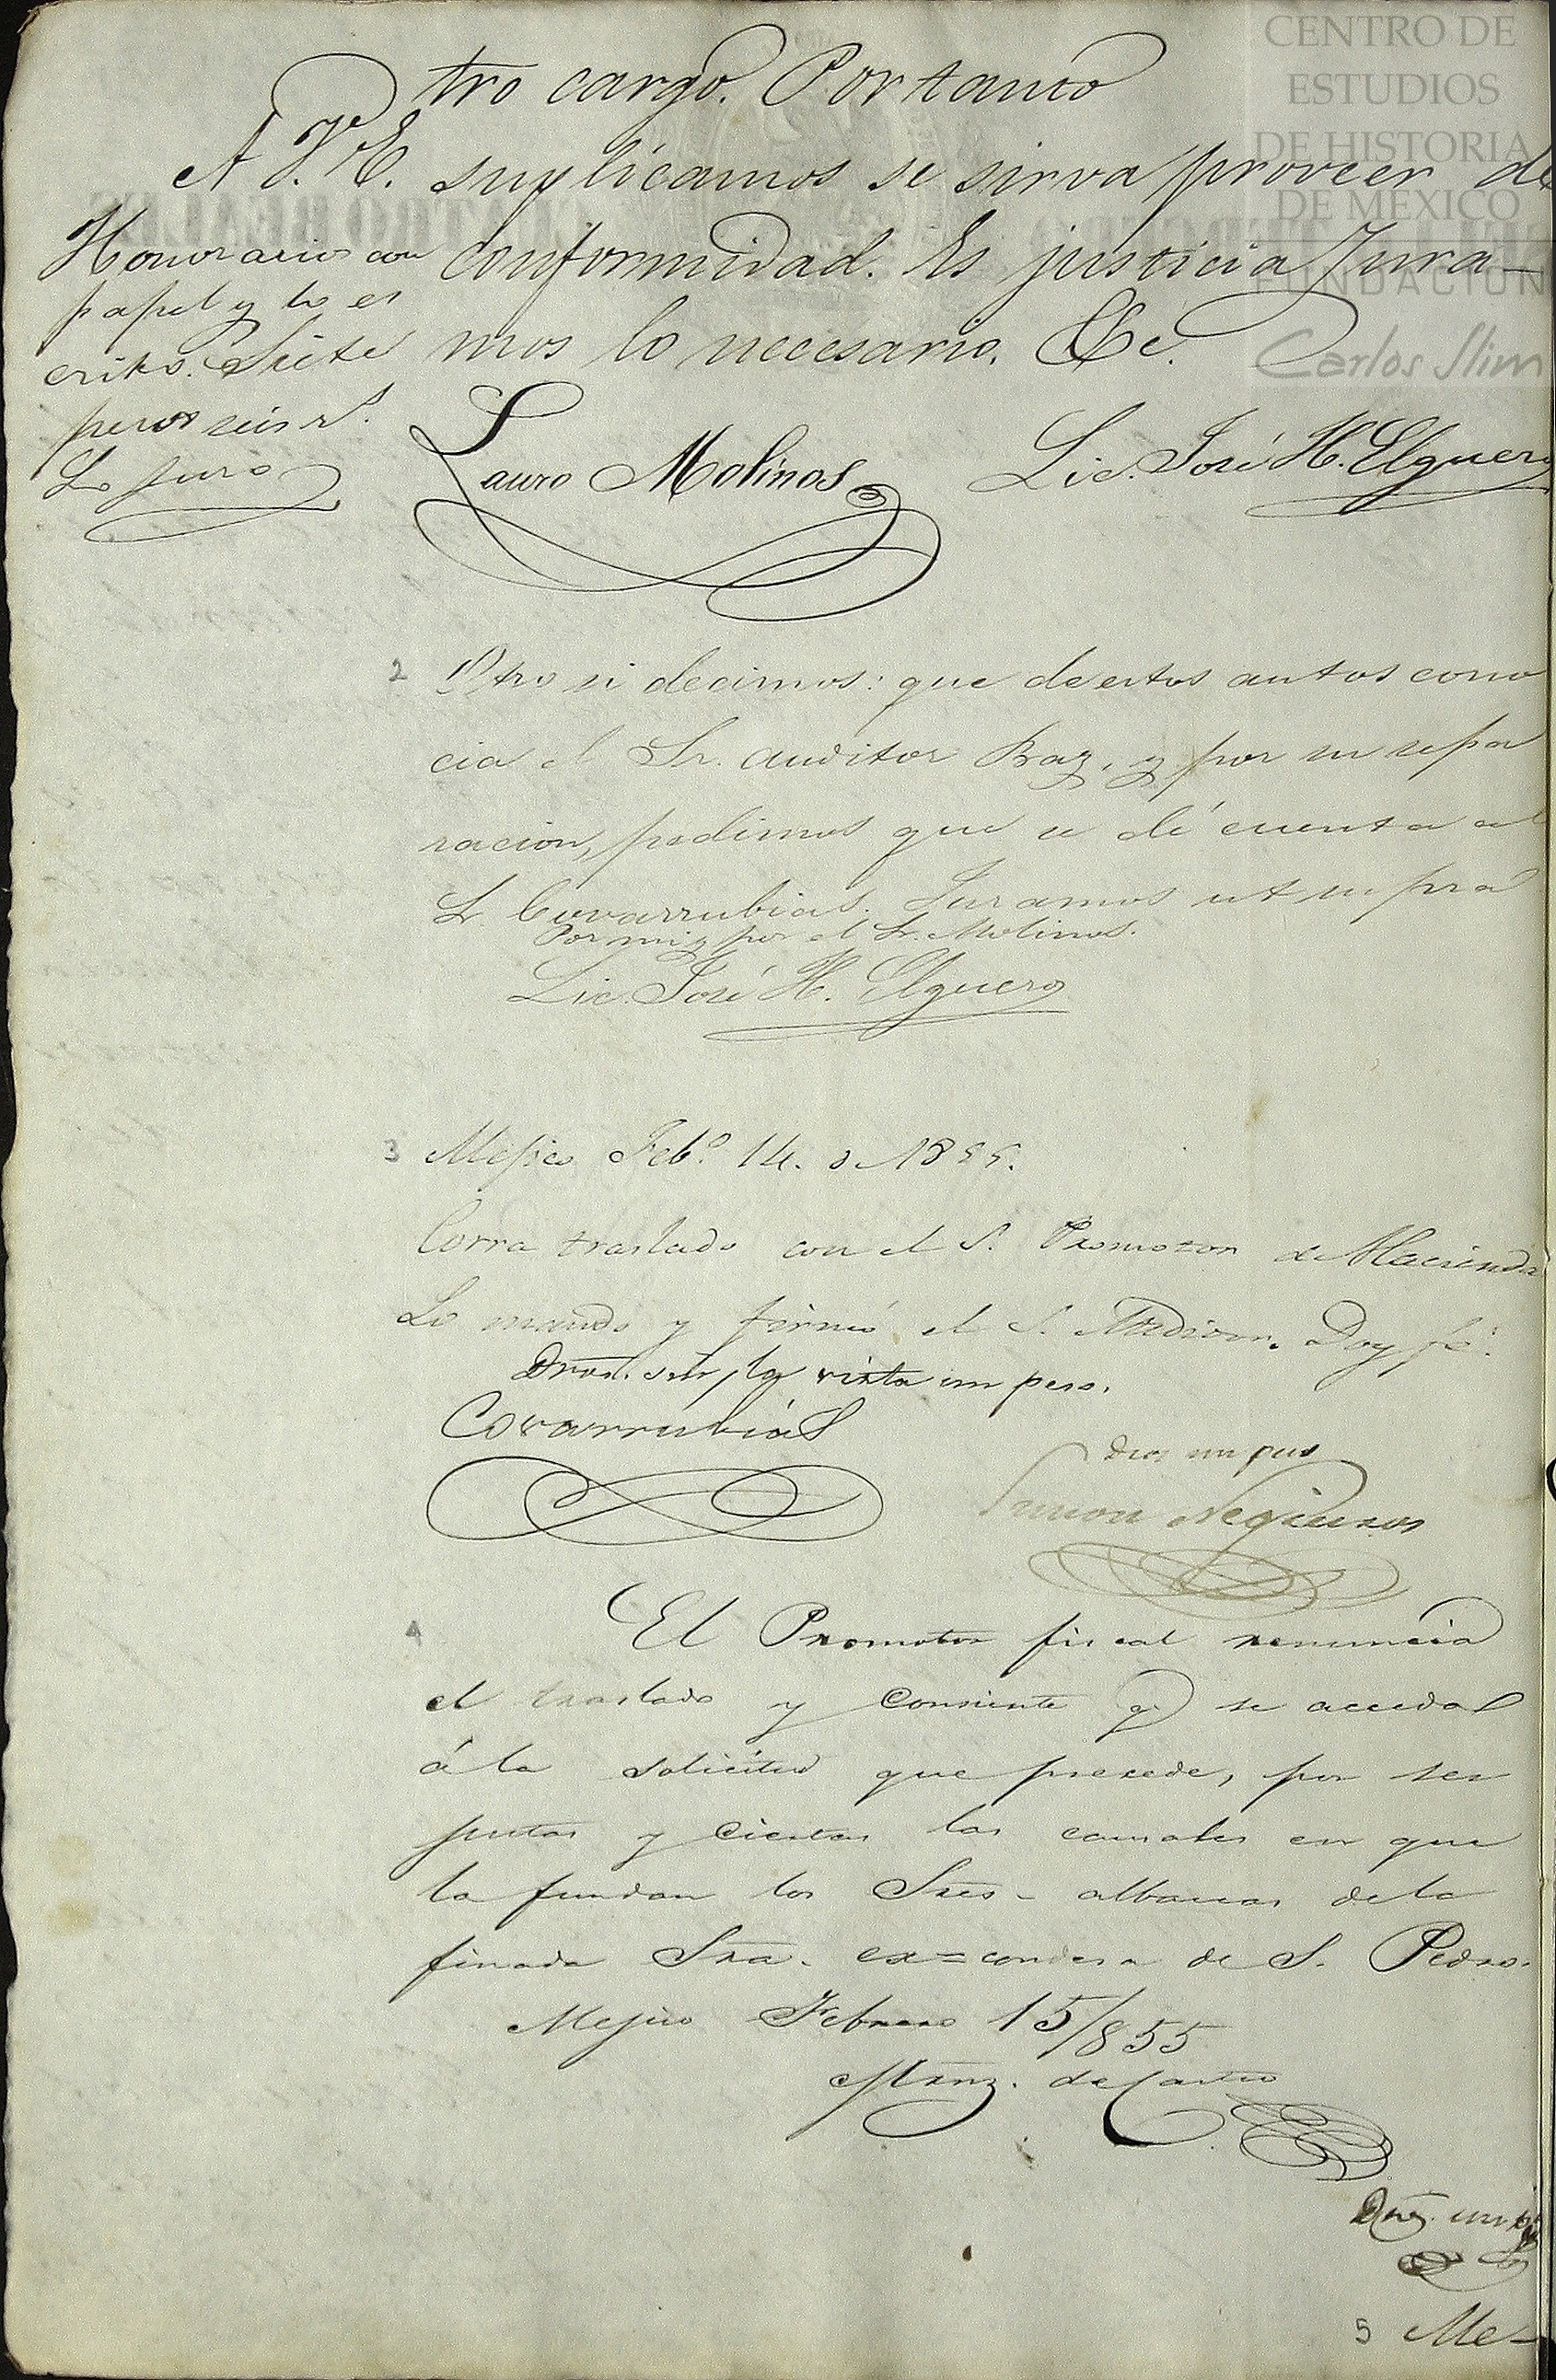 CENTRO DE
ESTUDIOS
DE HISTORIA
DE MEXICO
FUNDACION
Carlos Slim
tro cargo. Portanto
A V. E. suplicamos se sirva proveer de
conformidad. Es justicia Jura-
mos lo necesario. &c.
Honorarios con
papel y lo es
crito. Siete
pesos seis rs.
Lo juro
Lauro Molinos
Lic. José H. Elguero
2 Otro si decimos: que de estos autos cono
cia el Sr. auditor Baz, y por su sepa
racion, pedimos que se dé cuenta al
Sr. Covarrubias. Juramos ut supra
Por mi y por el Sr. Molinos.
Lic. José H. Elguero
3 Mejico Feb.o 14. de 1855.
Corra traslado con el S. Promotor de Hacienda
Lo mandó y firmó el S. Auditor. Doy fé.
Dros. sin la vista un peso.
Covarrubias
Dros un peso
Negreiros
4 El Promotor fiscal renuncia
el traslado y consiente q. se acceda
á la solicitud que precede, por ser
justas y ciertas las causales en que
la fundan los Sres. albaceas de la
finada Sra. ex=condesa de S. Pedro.
Mejico Febrero 15/855
Mrnz. de Castro
5 Me-